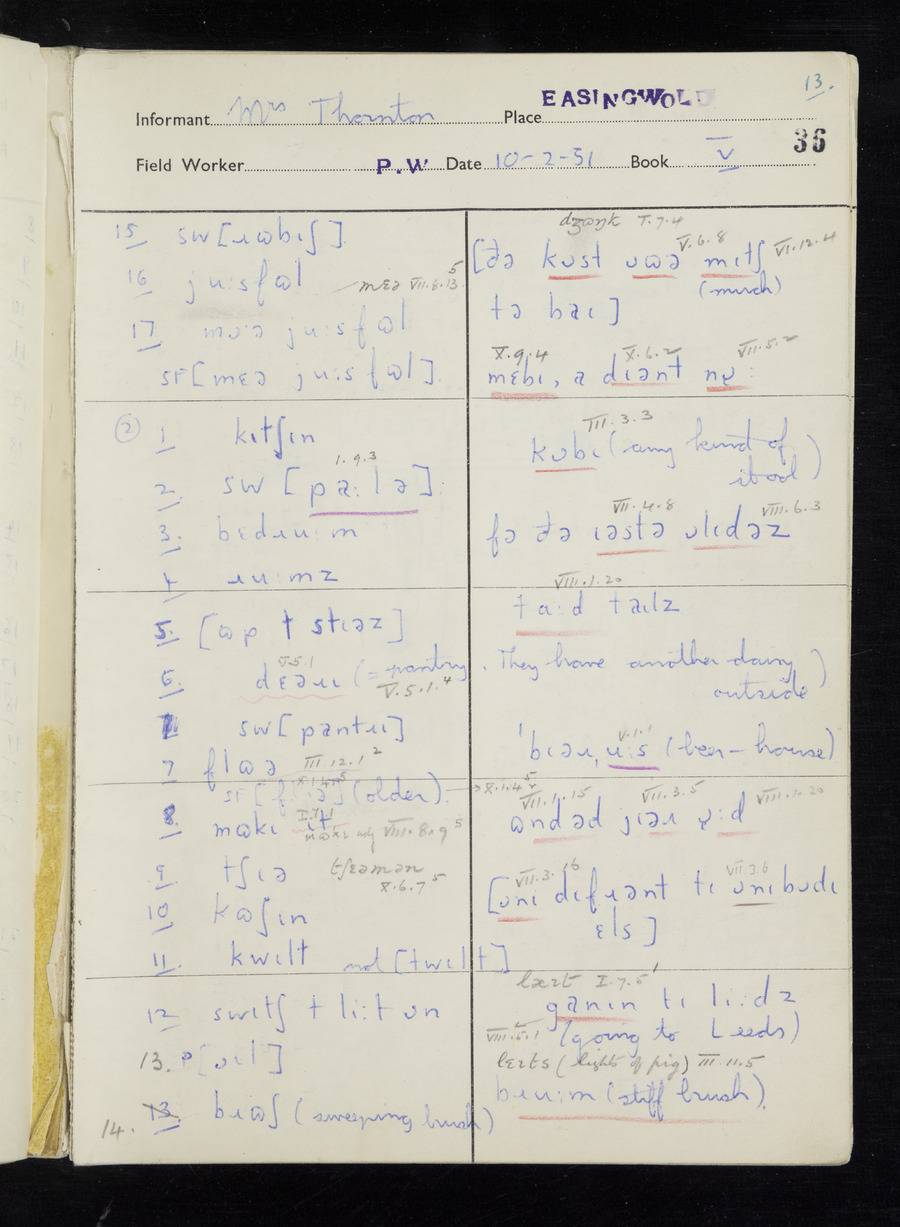 13.
Informant Mrs Thornton Place EASINGWOLD
36
Field Worker P.W Date 10-2-51 Book V
15 sw[ɹɷbɪʃ].
16 ju:sfəl
mɛə VII.8.13 5
17 mʊə ju:sfəl
sr[mɛə ju:sfəl].
② 1 kɪtʃɪn
1.9.3
2. sw [pa:lə].
3. bɛdɹu:m
4 ɹu:mz
5. [ɷp t stɪəz]
V.5.1
6. dɛəɹɪ (= pantry
V.5.1.4
sw[pantɹɪ]
7 flɷə III.12.1 2
(older).
8. mɷkɪ it
VIII.8.9 5
9 tʃɪə tʃɛəmən
X.6.7 5
10 kɷʃɪn
11. kwɪlt not [twɪlt]
12 swɪtʃ t li:t ʊn
13.
14. 13. bɹɷʃ (sweeping brush)
dʒɷŋk V.7.4
V.6.8 VI.12.4
[ðə kʊst ʊɷə mɪtʃ
(much)
tə baɪ]
X.9.4 X.6.2 VII.5.2
mɛbɪ, a dɪənt nɣ:
III.3.3
kʊbɪ (any kind of
stool)
VII.4.8 VIII.6.3
fə ðə ɪəstə ʊlɪdəz
VIII.1.20
ta:d taɪlz
. They have another dairy
outside)
V.1.1
'bɪəɹ, u:s (beer-house)
X.1.4 5
VII.1.15 VII.3.5 VIII.1.20
ɷndəd jɪəɹ ɣ:d
VII.3.16 VII.3.6
[ʊnɪ dɪfɹənt tɪ ʊnɪbʊdɪ
ɛls]
I.7.5
ganɪn tɪ li:dz
VIII.5.1 (going to Leeds)
(lights of pig) III.11.5
bɹu:m (stiff brush).